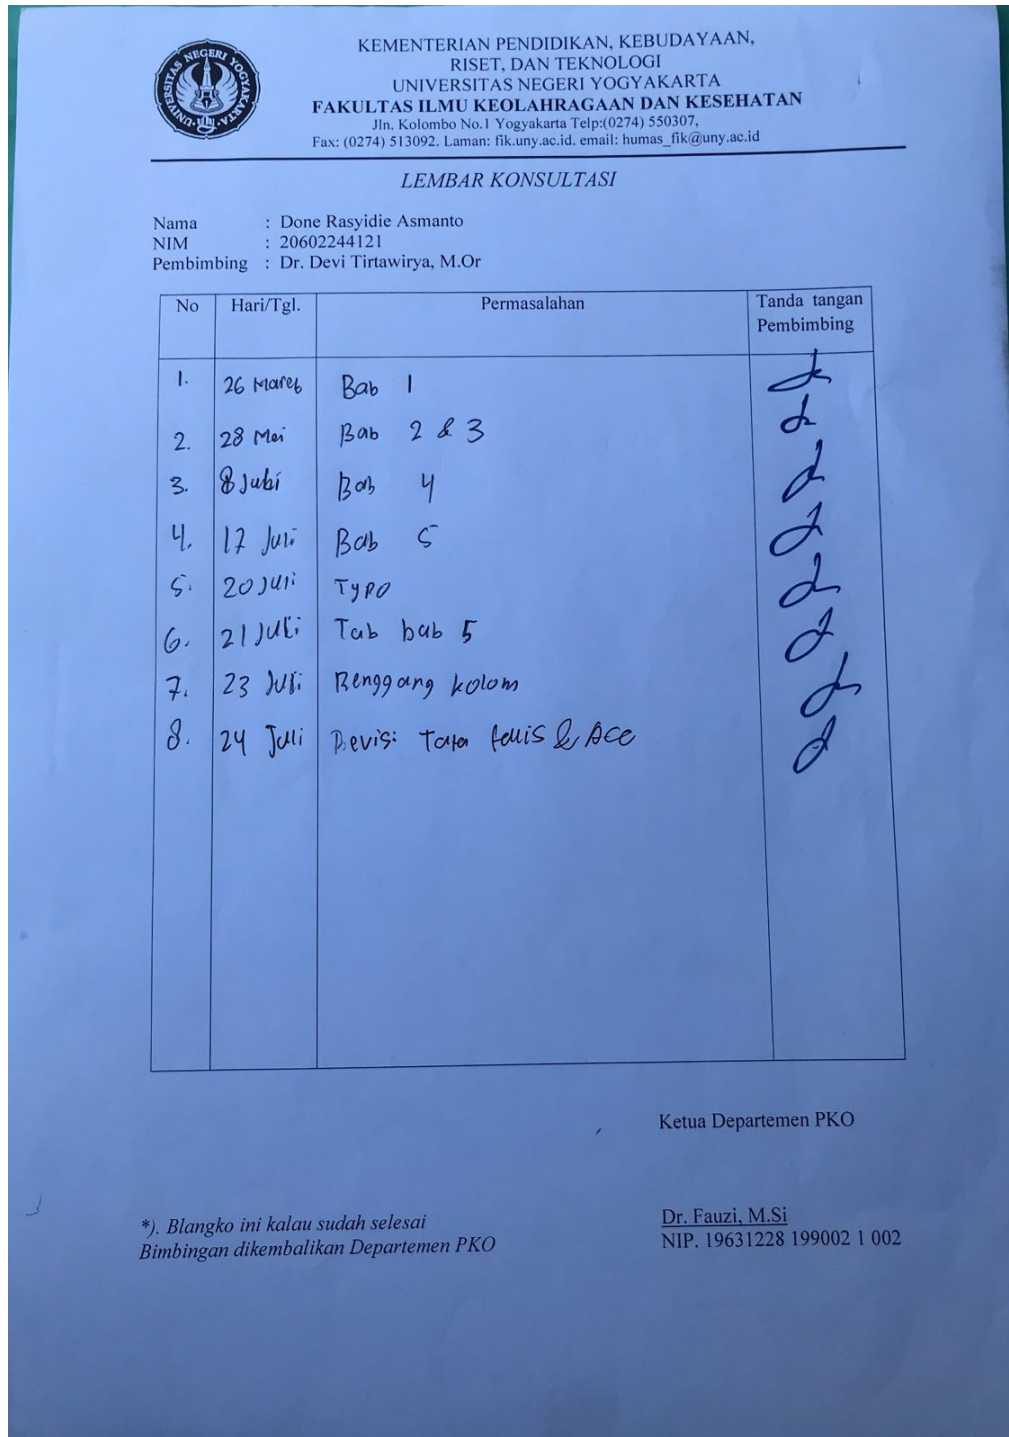 UNIVERSITAS NEGERI YOGYAKARTA
UNY
KEMENTERIAN PENDIDIKAN, KEBUDAYAAN,
RISET, DAN TEKNOLOGI
UNIVERSITAS NEGERI YOGYAKARTA
FAKULTAS ILMU KEOLAHRAGAAN DAN KESEHATAN
Jln. Kolombo No.1 Yogyakarta Telp:(0274) 550307,
Fax: (0274) 513092. Laman: fik.uny.ac.id. email: humas_fik@uny.ac.id
LEMBAR KONSULTASI
Nama : Done Rasyidie Asmanto
NIM : 20602244121
Pembimbing : Dr. Devi Tirtawirya, M.Or
No Hari/Tgl. Permasalahan Tanda tangan
Pembimbing
1. 26 Maret Bab 1
2. 28 Mei Bab 2 & 3
3. 8 Bab 4
4. 17 Juli Bab 5
5. 20 Juli Typo
6. 21 Juli Tab bab 5
7. 23 Juli Renggang kolom
8. 24 Juli Revisi Tata & Acc
Ketua Departemen PKO
*). Blangko ini kalau sudah selesai
Bimbingan dikembalikan Departemen PKO
Dr. Fauzi, M.Si
NIP. 19631228 199002 1 002